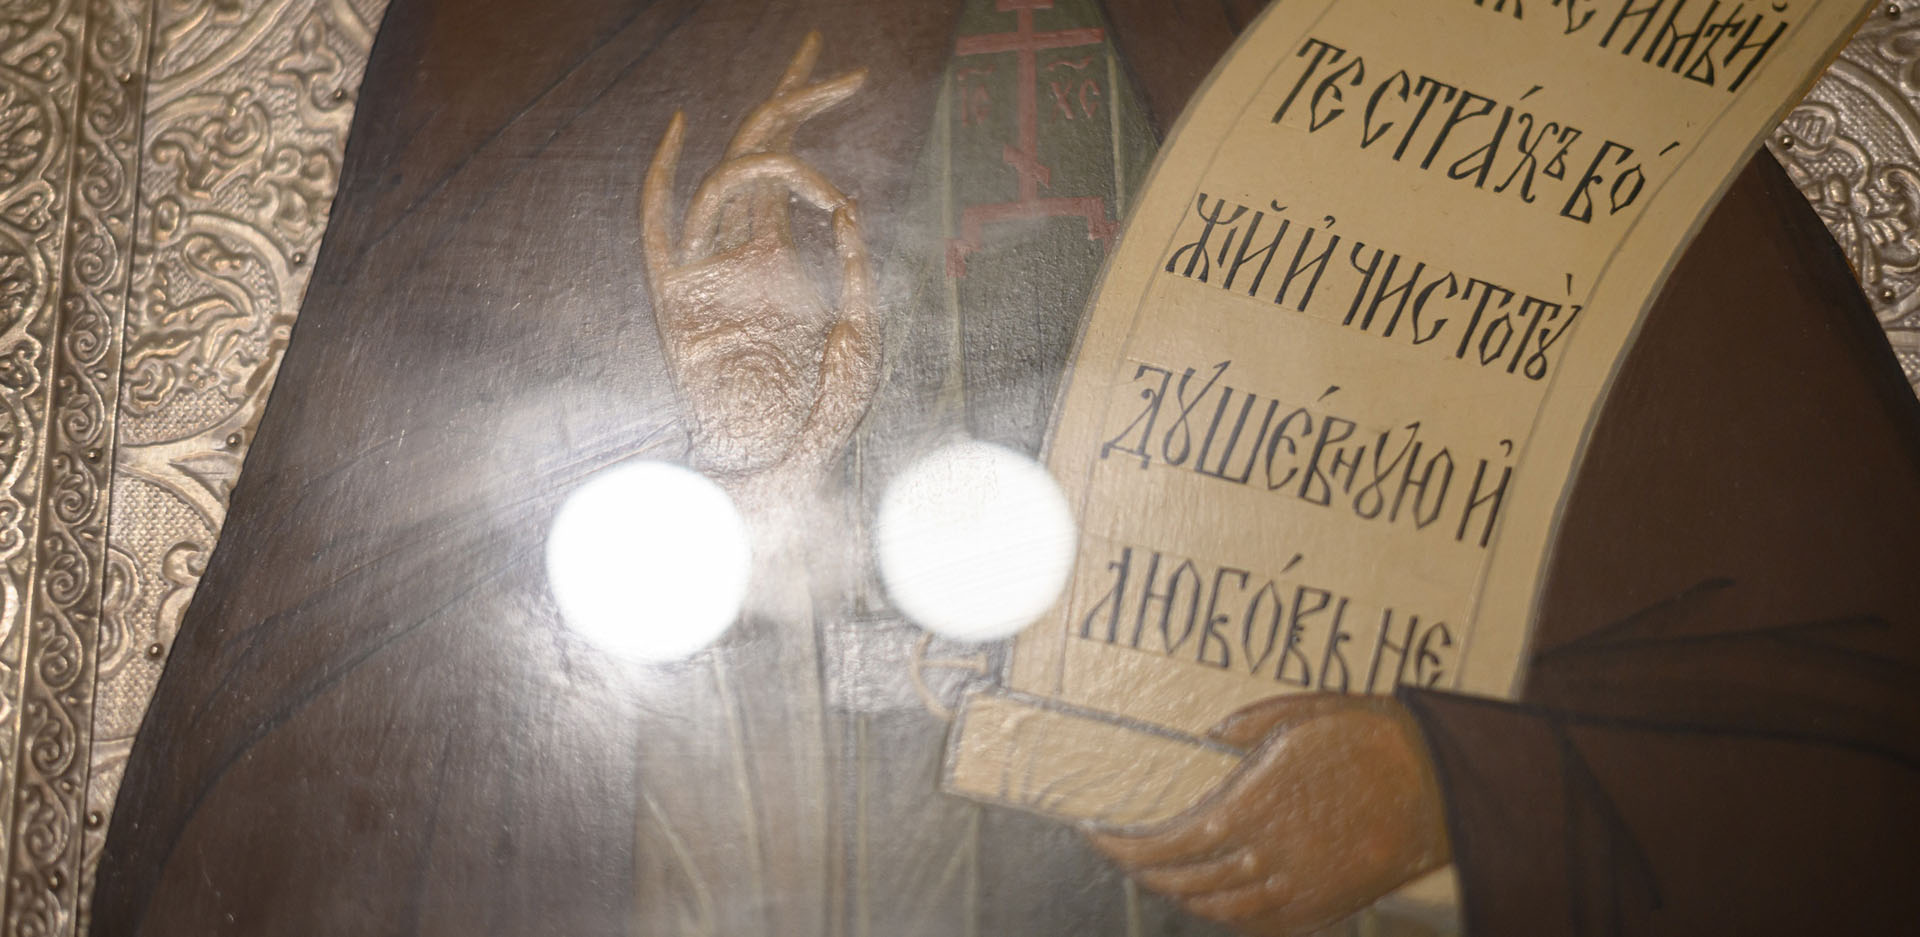 І҃С Х҃С
же имѣй
те стра́хъ бо́
жїй и҆ чистотꙋ̀
дꙋше́внꙋю и҆
любо́вь не